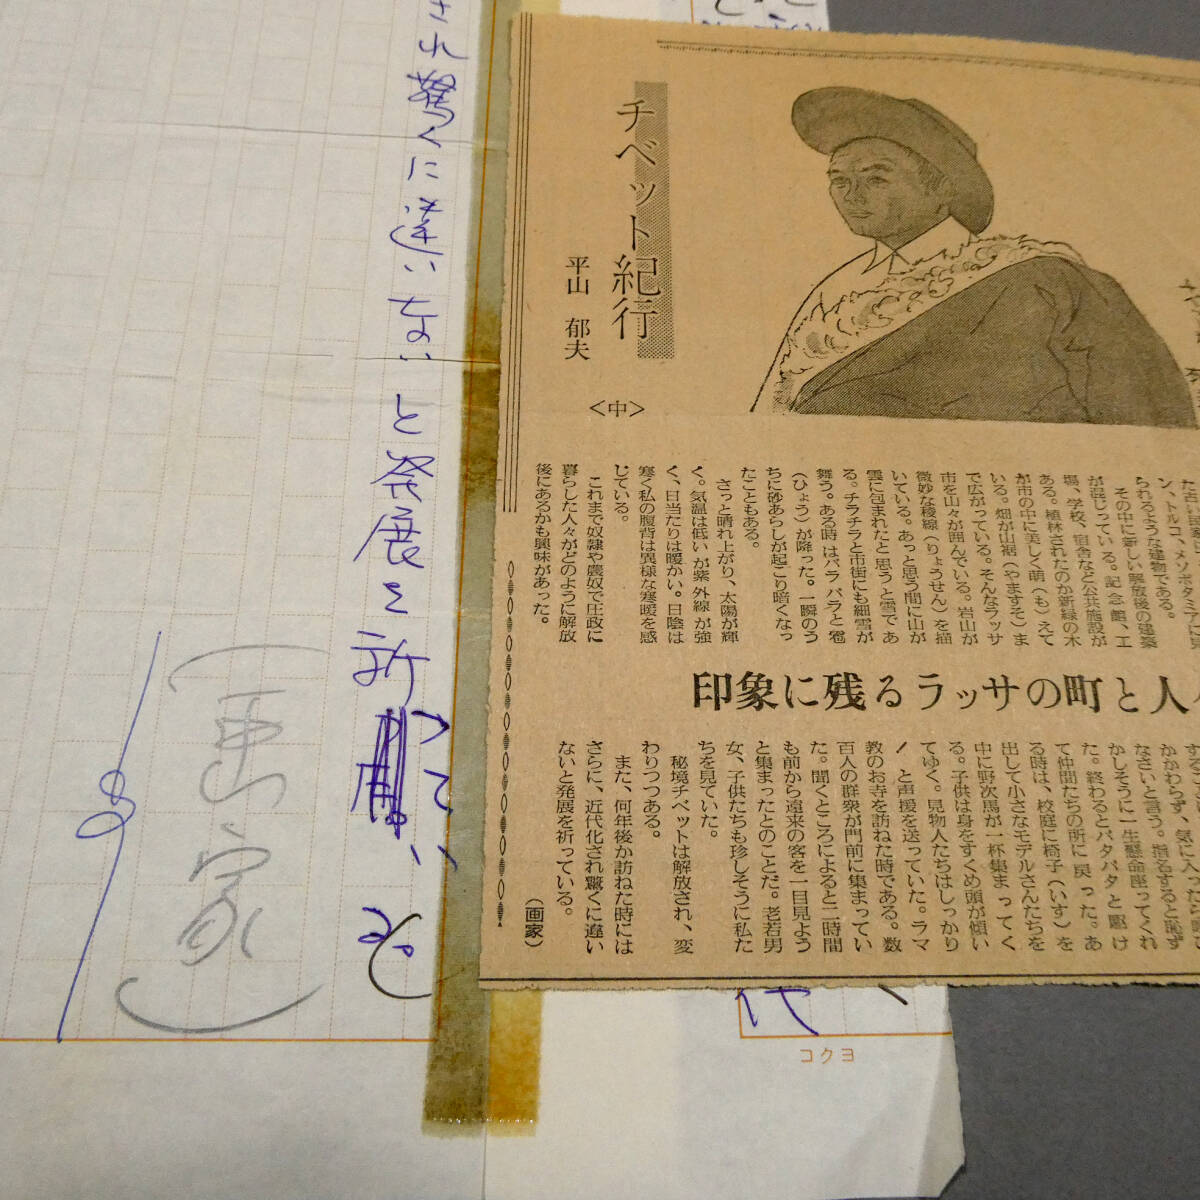 チベット紀行
平山 郁夫
<中>
ン、トルコ、メソポタミアに見
られるような建物である。
その中に新しい解放後の建築
が混じっている。記念館、工
場、学校、宿舎など公共施設が
ある。植林されたのか新緑の木
が市の中に美しく萌(も)えて
いる。畑が山裾(やますそ)ま
で広がっている。そんなラッサ
市を山々が囲んでいる。岩山が
微妙な稜線(りょうせん)を描
いている。あっと思う間に山が
雲に包まれたと思うと雪であ
る。チラチラと市街にも細雪が
舞う。ある時はバラバラと雹
(ひょう)が降った。一瞬のう
ちに砂あらしが起こり暗くなっ
たこともある。
さっと晴れ上がり、太陽が輝
く。気温は低いが紫外線が強
く、日当たりは暖かい。日陰は
寒く私の腹背は異様な寒暖を感
じている。
これまで奴隷や農奴で圧政に
暮らした人々がどのように解放
後にあるかも興味があった。
印象に残るラッサの町と人
かかわらず、気に入った
なさいと言う。指名すると恥ず
かしそうに一生懸命座ってくれ
た。終わるとパタパタと駆け
て仲間たちの所に戻った。あ
る時は、校庭に椅子(いす)を
出して小さなモデルさんたちを
中に野次馬が一杯集まってく
る。子供は身をすくめ頭が傾い
てゆく。見物人たちはしっかり
!と声援を送っていた。ラマ
教のお寺を訪ねた時である。数
百人の群衆が門前に集まってい
た。聞くところによると二時間
も前から遠来の客を一目見よう
と集まったとのことだ。老若男
女、子供たちも珍しそうに私た
ちを見ていた。
秘境チベットは解放され、変
わりつつある。
また、何年後か訪ねた時には
さらに、近代化され驚くに違い
ないと発展を祈っている。
(画家)
され驚くに違いないと発展を祈っている。
(画家)
代
コクヨ